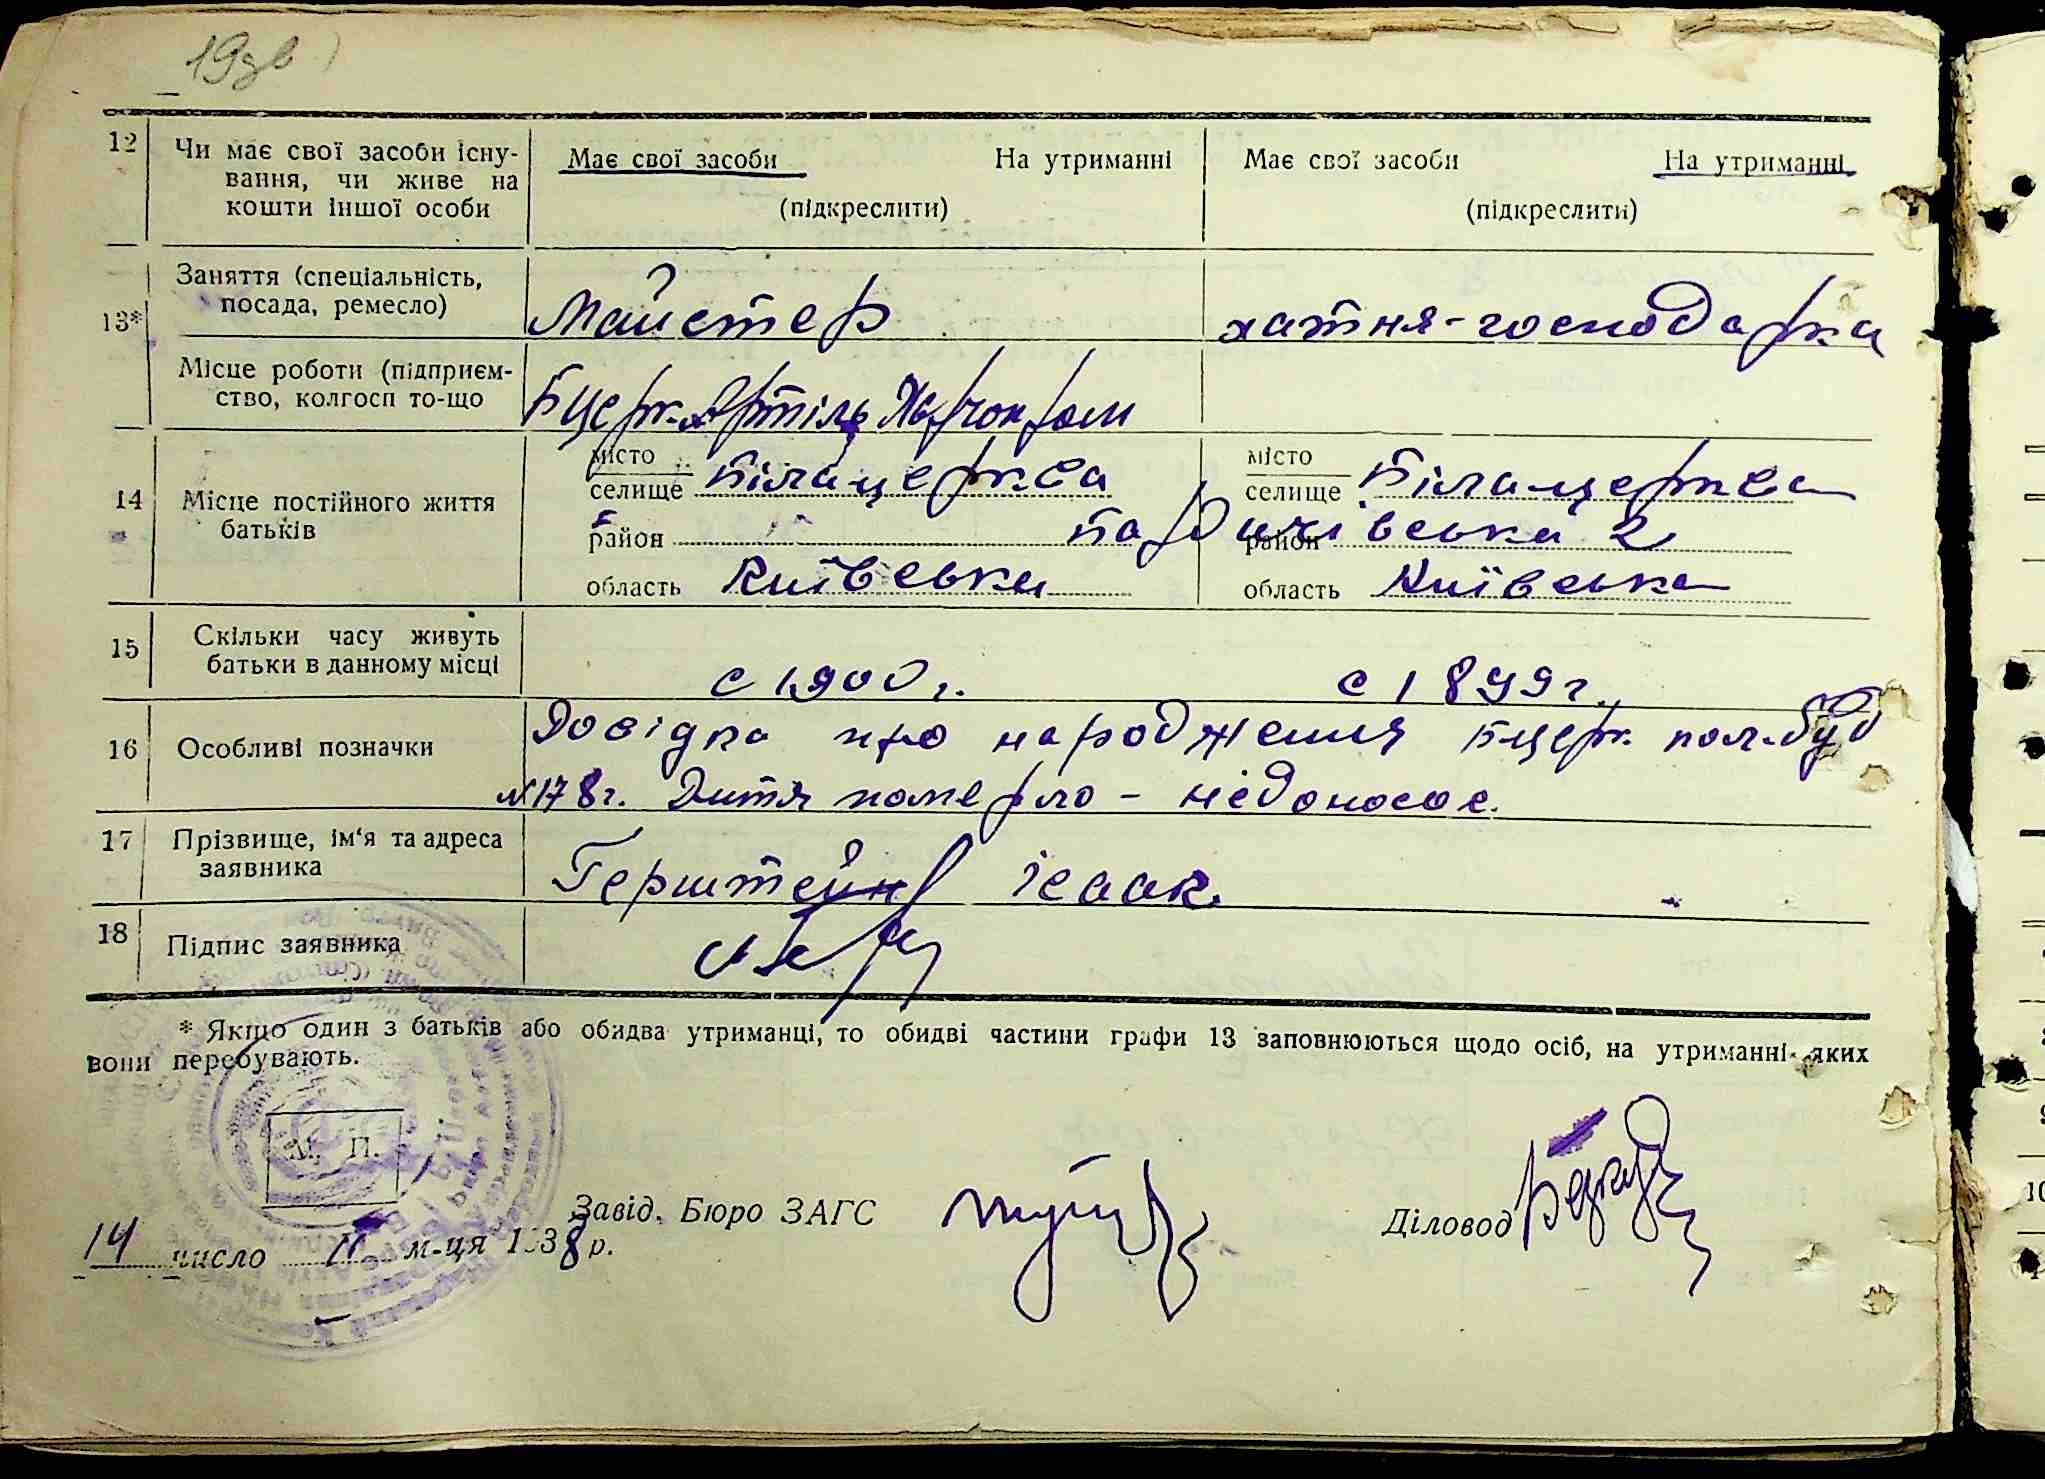 19зв
12 Чи має свої засоби існу- Має свої засоби На утриманні Має свої засоби На утриманні
вання, чи живе на
кошти іншої особи (підкреслити) (підкреслити)
13* Заняття (спеціальність,
посада, ремесло) Майстер хатня-господарка
Місце роботи (підприєм-
ство, колгосп то-що Бцерк. Артіль
14 Місце постійного життя
батьків
місто
селище Біла церква
місто
селище Біла церква
район район вська 2
область Київська область Київська
15 Скільки часу живуть
батьки в данному місці с 1900 г. с 1899 г.
16 Особливі позначки Довідка про народження Бцерк. пол. буд
№178 г. Дитя померло - недоносок.
17 Прізвище, ім'я та адреса
заявника Герштейн Ісаак
18 Підпис заявника
* Якщо один з батьків або обидва утриманці, то обидві частини графи 13 заповнюються щодо осіб, на утриманні яких
вони перебувають.
М. П.
Завід. Бюро ЗАГС Діловод
14 число II м-ця 1938 р.